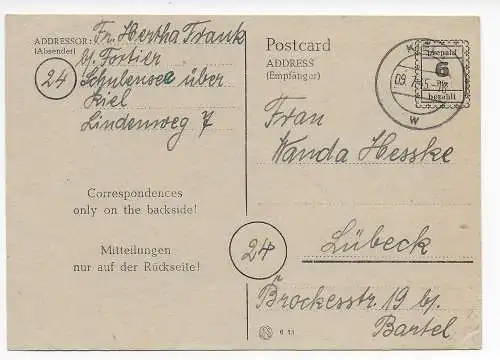 ADDRESSOR: Fr. Hertha Frank
(Absender) b/. Fortier
24 Schulensee über
Kiel
Lindenweg 7
Correspondences
only on the backside!
Mitteilungen
nur auf der Rückseite!
Postcard
ADDRESS
(Empfänger)
prepaid
6
Pfg
bezahlt
KIEL
09. 
W
Frau
Wanda Hesske
24 Lübeck
Brockesstr. 19 b/.
Bartel
6 45